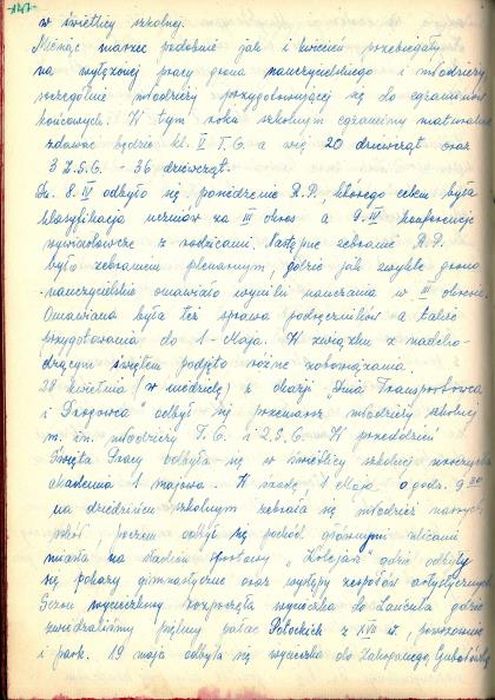 147
w świetlicy szkolnej.
Miesiąc marzec podobnie jak i kwiecień przebiegały
na wytężonej pracy grona nauczycielskiego i młodzieży
szczególnie młodzieży przygotowującej się do egzaminów
końcowych. W tym roku szkolnym egzaminy maturalne
zdawać będzie kl. V T.G. a więc 20 dziewcząt oraz
3 Z.S.G. - 36 dziewcząt.
Dn. 8.IV odbyło się posiedzenie R.P., którego celem była
klasyfikacja uczniów za III okres a 9.IV konferencje
wywiadowcze z rodzicami. Następne zebranie R.P.
było zebraniem plenarnym, gdzie jak zwykle grono
nauczycielskie omawiało wyniki nauczania w III okresie.
Omawiana była też sprawa podręczników a także
przygotowania do 1-Maja. W związku z nadcho-
dzącym świętem podjęto różne zobowiązania.
28 kwietnia (w niedzielę) z okazji „Dnia Transportowca
i Drogowca" odbył się przemarsz młodzieży szkolnej
m. in. młodzieży T.G. i Z.S.G. W przeddzień
Święta Pracy odbyła się w świetlicy szkolnej uroczysta
akademia 1 majowa. W środę, 1 Maja o godz. 9
na dziedzińcu szkolnym zebrała się młodzież naszych
szkół, poczem odbył się pochód głównymi ulicami
miasta na stadion sportowy „Kolejarz" gdzie odbyły
się pokazy gimnastyczne oraz występy zespołów artystycznych
Sezon wycieczkowy rozpoczęła wycieczka do Łańcuta gdzie
zwiedzaliśmy piękny pałac Potockich z XVII w., powozownię
i park. 19 maja odbyła się wycieczka do Zakopanego, Gubałówkę